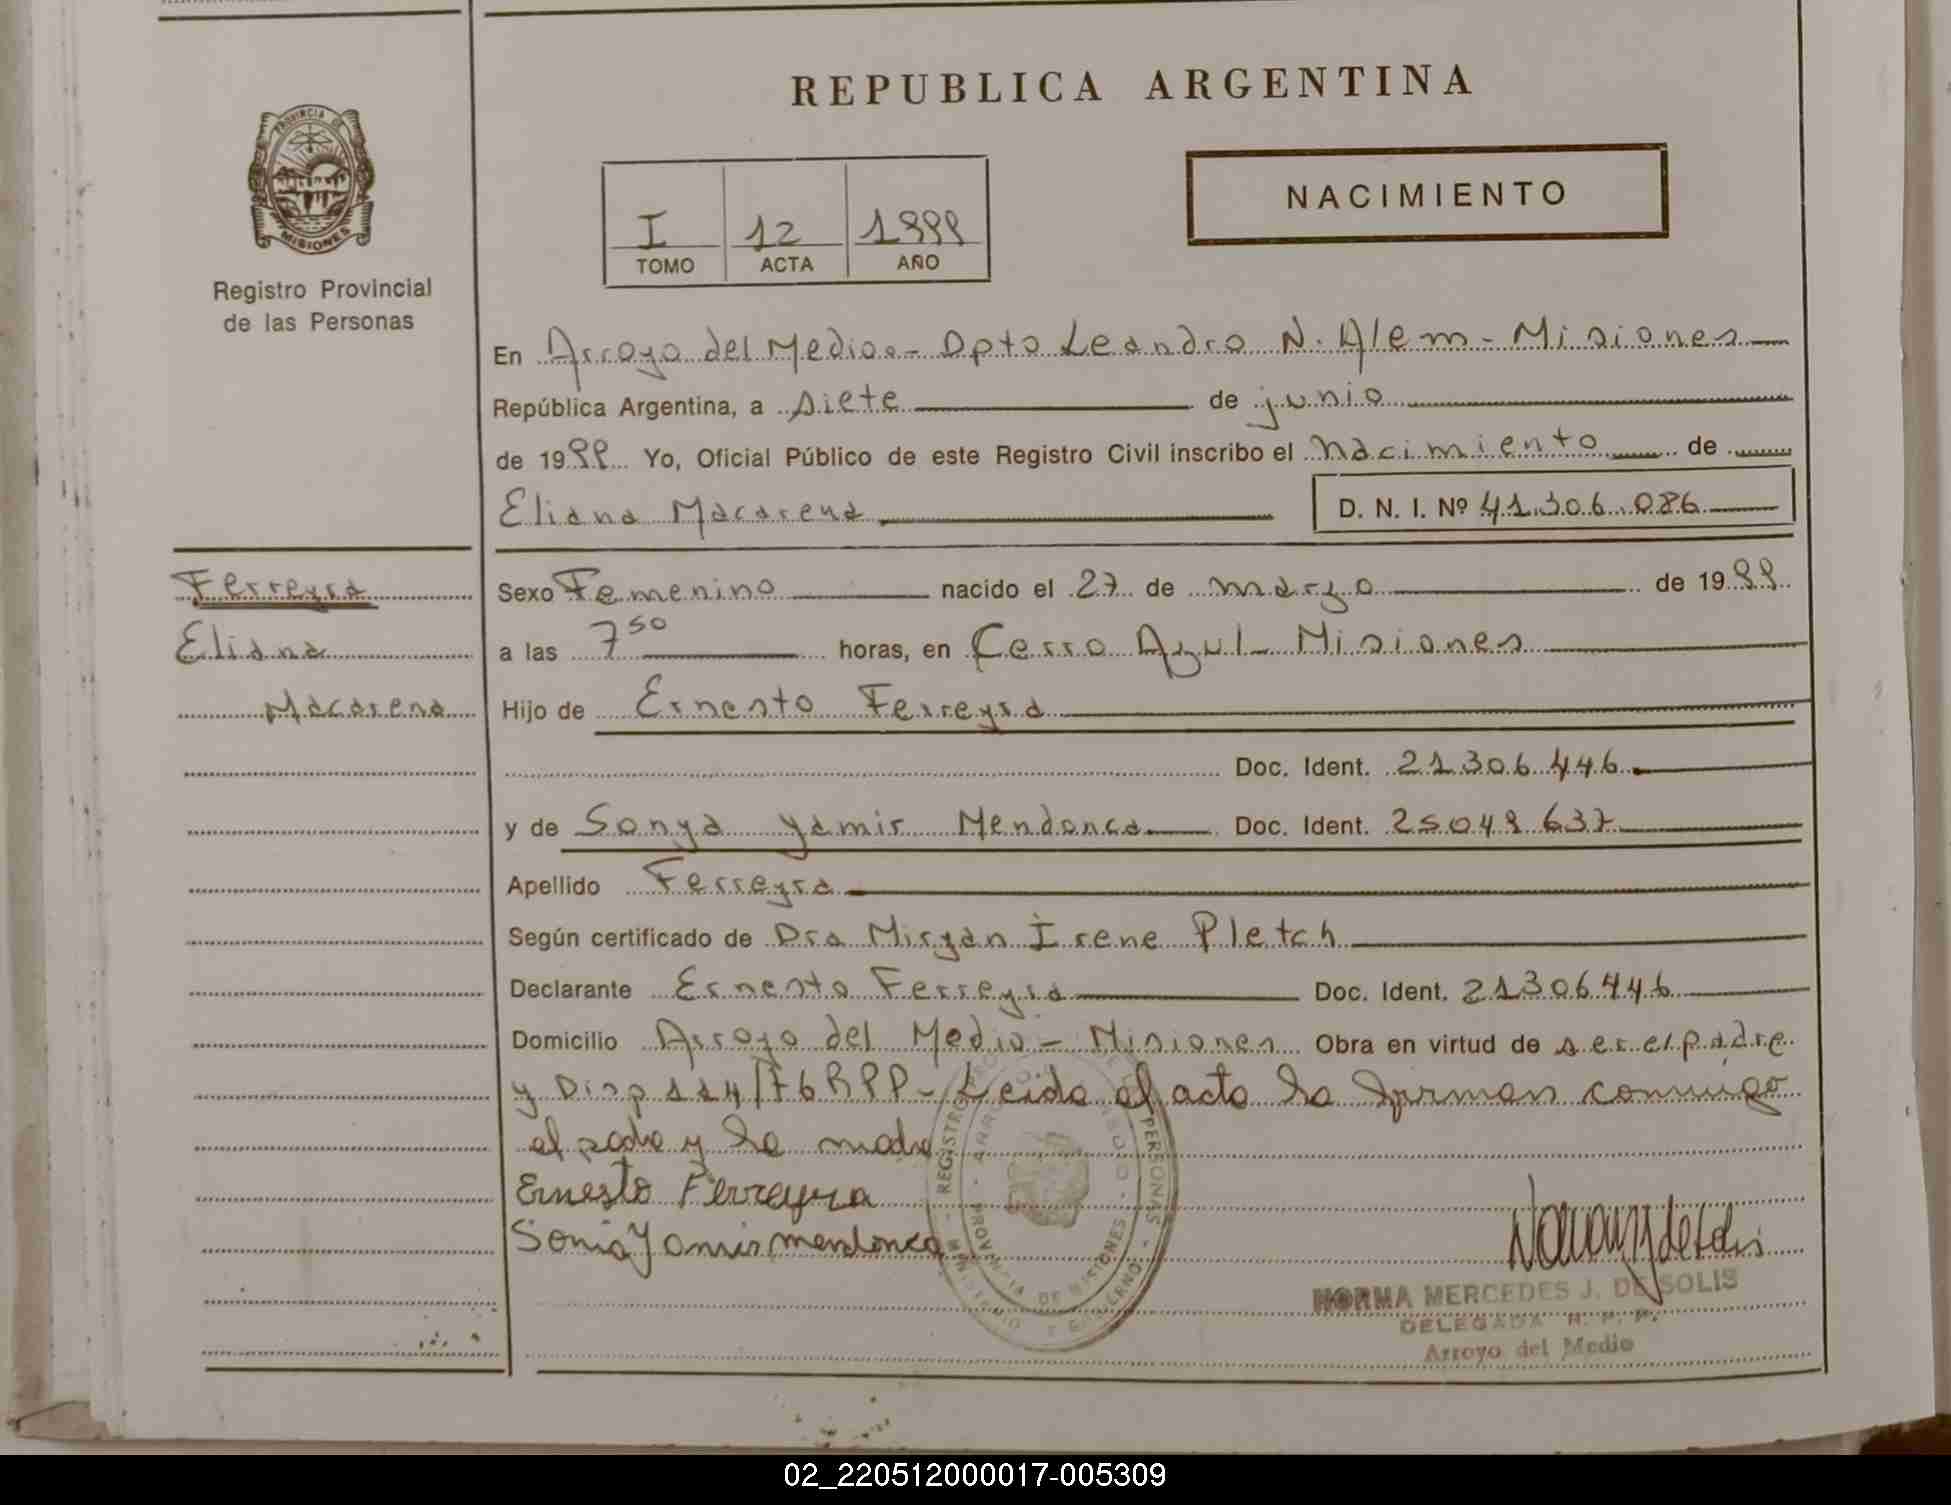 REPUBLICA ARGENTINA
PROVINCIA DE
MISIONES
Registro Provincial
de las Personas
I 12 1999
TOMO ACTA AÑO
NACIMIENTO
En Arroyo del Medio.- Dpto Leandro N. Alem - Misiones
República Argentina, a siete de junio
de 1999 Yo, Oficial Público de este Registro Civil inscribo el nacimiento de
Eliana Macarena D. N. I. Nº 41.306.086
Ferreyra
Eliana
Macarena
Sexo Femenino nacido el 27 de marzo de 1999
a las 7 50 horas, en Cerro Azul - Misiones
Hijo de Ernesto Ferreyra
Doc. Ident. 21.306.446
y de Sonya Yamis Mendonca Doc. Ident. 25049637
Apellido Ferreyra
Según certificado de Dra Miryan Irene Pletch
Declarante Ernesto Ferreyra Doc. Ident. 21306446
Domicilio Arroyo del Medio - Misiones Obra en virtud de ser el padre
y Disp 114/76 RPP - Leida el acta la firman conmigo
el padre y la madre
Ernesto Ferreyra
Sonia Yamis mendonca
NORMA MERCEDES J. DE SOLIS
DELEGADA R. P. P.
Arroyo del Medio
02_220512000017-005309